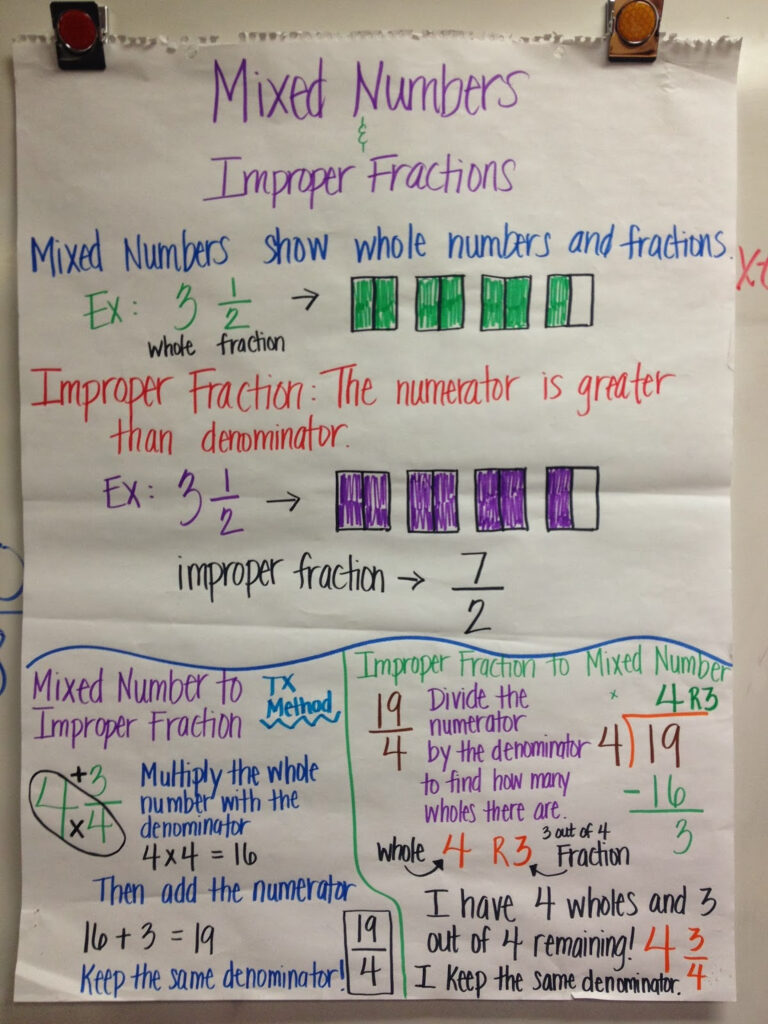 Mixed Numbers
&
Improper Fractions
Mixed Numbers show whole numbers and fractions.
Ex: 3 1/2 →
whole fraction
Improper Fraction: The numerator is greater
than denominator.
Ex: 3 1/2 →
improper fraction → 7/2
Mixed Number to
Improper Fraction
TX
Method
4 3/4 + x
Multiply the whole
number with the
denominator
4x4 = 16
Then add the numerator
16 + 3 = 19
Keep the same denominator!
19/4
Improper Fraction to Mixed Number
19/4
Divide the
numerator
by the denominator
to find how many
wholes there are.
x 4 R3
4)19
-16
3
whole 4 R3 3 out of 4 Fraction
I have 4 wholes and 3
out of 4 remaining! 4 3/4
I Keep the same denominator.